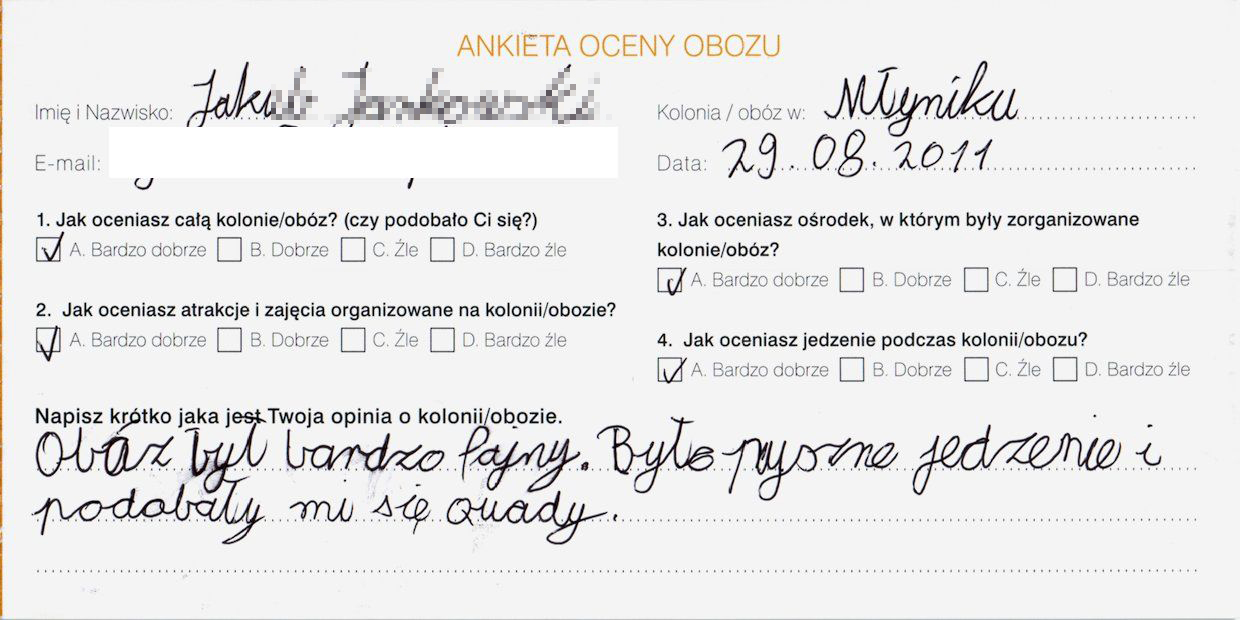 ANKIETA OCENY OBOZU
Imię i Nazwisko: Jakub
Kolonia / obóz w: Młyniku
E-mail:
Data: 29.08.2011
1. Jak oceniasz całą kolonie/obóz? (czy podobało Ci się?)
A. Bardzo dobrze B. Dobrze C. Źle D. Bardzo źle
2. Jak oceniasz atrakcje i zajęcia organizowane na kolonii/obozie?
A. Bardzo dobrze B. Dobrze C. Źle D. Bardzo źle
3. Jak oceniasz ośrodek, w którym były zorganizowane
kolonie/obóz?
A. Bardzo dobrze B. Dobrze C. Źle D. Bardzo źle
4. Jak oceniasz jedzenie podczas kolonii/obozu?
A. Bardzo dobrze B. Dobrze C. Źle D. Bardzo źle
Napisz krótko jaka jest Twoja opinia o kolonii/obozie.
Obóz był bardzo fajny. Było pyszne jedzenie i
podobały mi się quady.